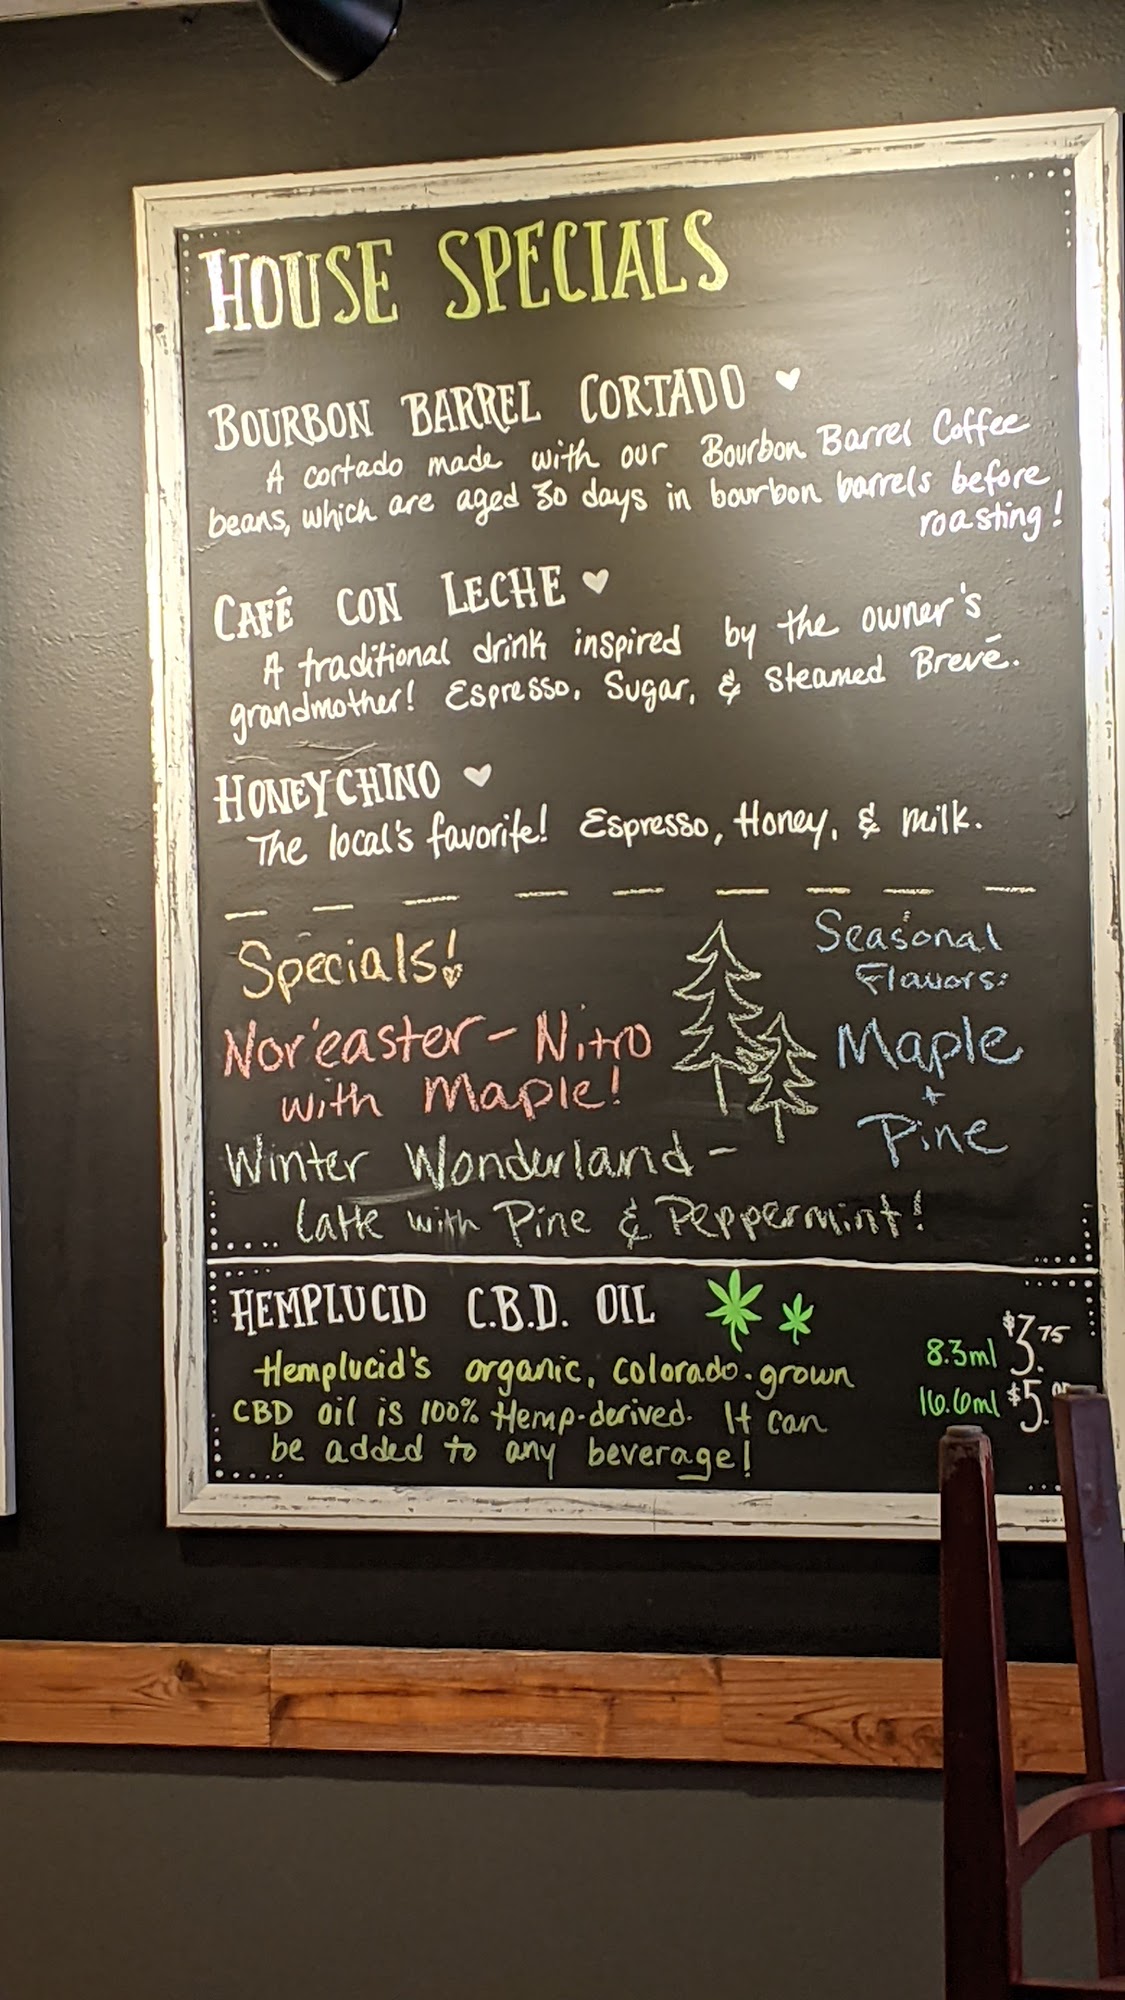 HOUSE SPECIALS
BOURBON BARREL CORTADO
A cortado made with our Bourbon Barrel Coffee
beans, which are aged 30 days in bourbon barrels before
roasting!
CAFÉ CON LECHE
A traditional drink inspired by the owner's
grandmother! Espresso, Sugar, & Steamed Brevé.
HONEYCHINO
The local's favorite! Espresso, Honey, & milk.
Specials!
Seasonal
Flavors:
Nor'easter - Nitro
with Maple!
Maple
+
Pine
Winter Wonderland -
Latte with Pine & Peppermint!
HEMPLUCID C.B.D. OIL
8.3ml $3.75
Hemplucid's organic, Colorado-grown
16.6ml $5.00
CBD oil is 100% Hemp-derived. It can
be added to any beverage!